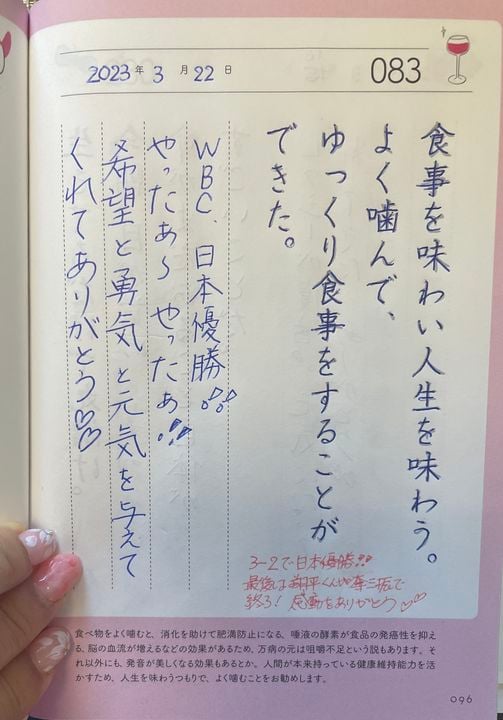 2023年3月22日
083
食事を味わい人生を味わう。
よく噛んで、
ゆっくり食事をすることが
できた。
WBC、日本優勝!!
やったぁ〜 やったぁ!!
希望と勇気と元気を与えて
くれてありがとう♡♡
3-2で日本優勝!!
最後は翔平くんが奪三振で
終了! 感動をありがとう♡♡
食べ物をよく噛むと、消化を助けて肥満防止になる、唾液の酵素が食品の発癌性を抑え
る、脳の血流が増えるなどの効果があるため、万病の元は咀嚼不足という説もあります。そ
れ以外にも、発音が美しくなる効果もあるとか。人間が本来持っている健康維持能力を活
かすため、人生を味わうつもりで、よく噛むことをお勧めします。
096